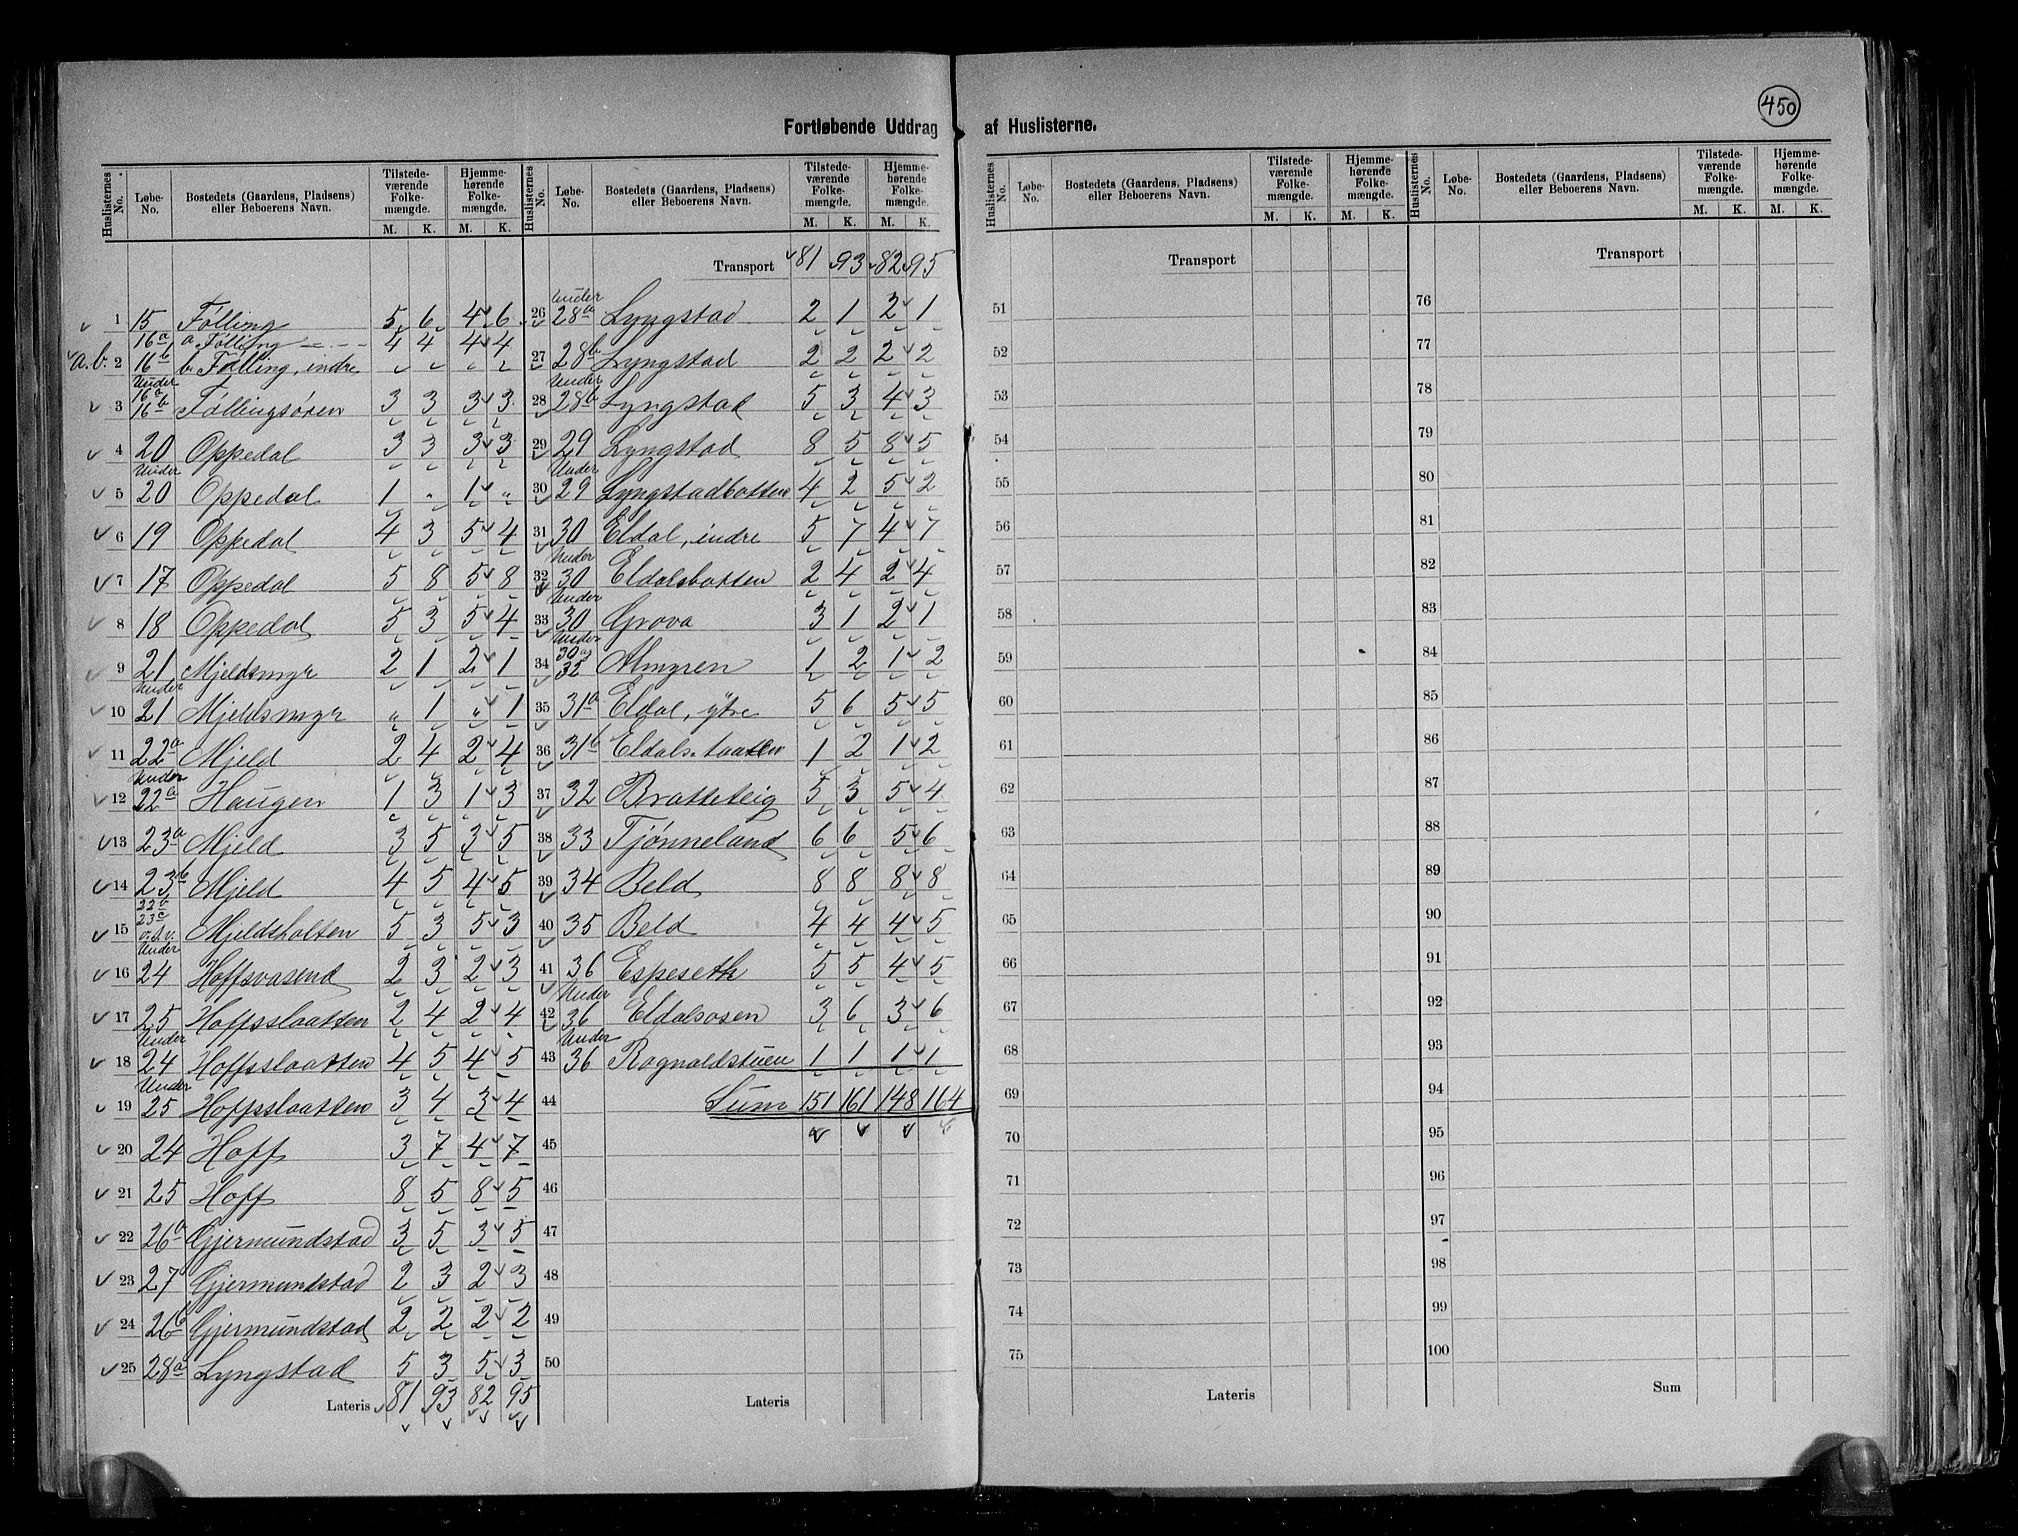 450
Fortløbende Uddrag af Huslisterne.
Huslisternes No. Løbe-No. Bostedets (Gaardens, Pladsens) eller Beboerens Navn. Tilstedeværende Folkemængde. M. K. Hjemmehørende Folkemængde. M. K.
1 15 Følling 5 6 4 6
16a a Følling 4 4 4 4
a.b. 2 16b b Følling, indre
3 Under 16a 16b Føllingsøren 3 3 3 3
4 20 Oppedal 3 3 3 3
5 Under 20 Oppedal 1 " 1 "
6 19 Oppedal 4 3 5 4
7 17 Oppedal 5 8 5 8
8 18 Oppedal 5 3 5 4
9 21 Mjeldsmyr 2 1 2 1
10 Under 21 Mjeldsmyr " 1 " 1
11 22a Mjeld 2 4 2 4
12 Under 22a Haugen 1 3 1 3
13 23a Mjeld 3 5 3 5
14 23b Mjeld 4 5 4 5
15 22b 23c o.s.v. Mjeldsholten 5 3 5 3
16 Under 24 Hoffsvasend 2 3 2 3
17 25 Hoffsslaatten 2 4 2 4
18 Under 24 Hoffsslaatten 4 5 4 5
19 Under 25 Hoffsslaatten 3 4 3 4
20 24 Hoff 3 7 4 7
21 25 Hoff 8 5 8 5
22 26a Gjermundstad 3 5 3 5
23 27 Gjermundstad 2 3 2 3
24 26b Gjermundstad 2 2 2 2
25 28a Lyngstad 5 3 5 3
Lateris 81 93 82 95
Huslisternes No. Løbe-No. Bostedets (Gaardens, Pladsens) eller Beboerens Navn. Tilstedeværende Folkemængde. M. K. Hjemmehørende Folkemængde. M. K.
Transport 81 93 82 95
26 Under 28a Lyngstad 2 1 2 1
27 28b Lyngstad 2 2 2 2
28 Under 28b Lyngstad 5 3 4 3
29 29 Lyngstad 8 5 8 5
30 Under 29 Lyngstadbotten 4 2 5 2
31 30 Eldal, indre 5 7 4 7
32 Under 30 Eldalsbotten 2 4 2 4
33 Under 30 Grova 3 1 2 1
34 Under 30 og 32 Almyren 1 2 1 2
35 31a Eldal, ytre 5 6 5 5
36 31b Eldalsslaatten 1 2 1 2
37 32 Bratteteig 5 3 5 4
38 33 Tjønneland 6 6 5 6
39 34 Beld 8 8 8 8
40 35 Beld 4 4 4 5
41 36 Espeseth 5 5 4 5
42 Under 36 Eldalsosen 3 6 3 6
43 Under 36 Ragnaldstuen 1 1 1 1
44 Sum 151 161 148 164
45
46
47
48
49
50
Lateris
Huslisternes No. Løbe-No. Bostedets (Gaardens, Pladsens) eller Beboerens Navn. Tilstedeværende Folkemængde. M. K. Hjemmehørende Folkemængde. M. K.
Transport
51
52
53
54
55
56
57
58
59
60
61
62
63
64
65
66
67
68
69
70
71
72
73
74
75
Lateris
Huslisternes No. Løbe-No. Bostedets (Gaardens, Pladsens) eller Beboerens Navn. Tilstedeværende Folkemængde. M. K. Hjemmehørende Folkemængde. M. K.
Transport
76
77
78
79
80
81
82
83
84
85
86
87
88
89
90
91
92
93
94
95
96
97
98
99
100
Sum